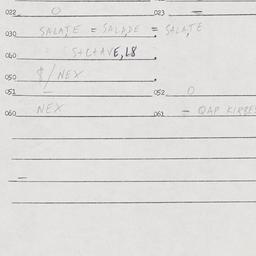 022 0 023 —
030 SALATE = SALADE = SALATE
060 S+C+AVE, L8
050 $/NEX
051 — 052 0
060 NEX 061 — QAP KIRBES